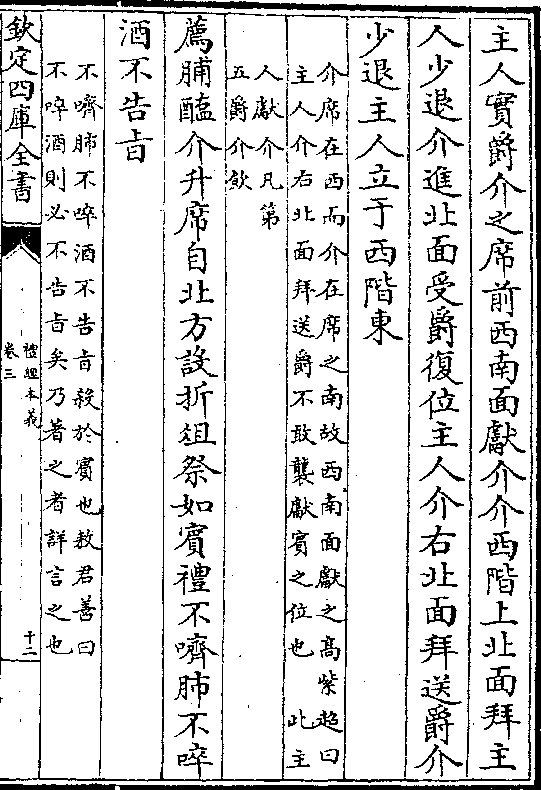 主人實爵介之席前西南面獻介介西階上北面拜主
人少退介進北面受爵復位主人介右北面拜送爵介
少退主人立于西階東
介席在西而介在席之南故西南面獻之高紫超曰
主人介右北面拜送爵不敢襲獻賓之位也　此主
人獻介凡第
五爵介飲
薦脯醢介升席自北方設折俎祭如賓禮不嚌肺不啐
酒不告旨
不嚌肺不啐酒不告旨殺於賓也敖君善曰
不啐酒則必不告旨矣乃著之者詳言之也
欽定四庫全書
禮經本義
卷三
十二